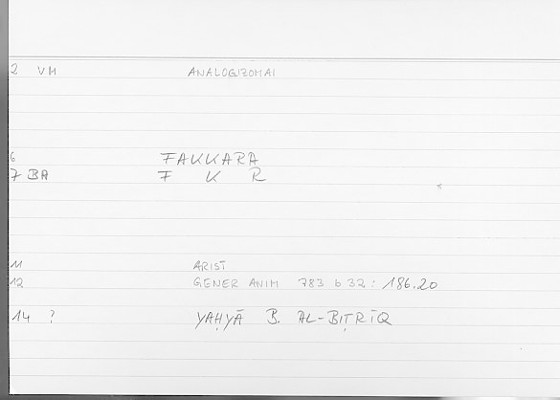 2 VM ANALOGIZOMAI
6 FAKKARA
7 BA F K R
11 ARIST
12 GENER ANIM 783 b 32 : 186.20
14 ? YAḤYĀ B. AL-BIṬRĪQ